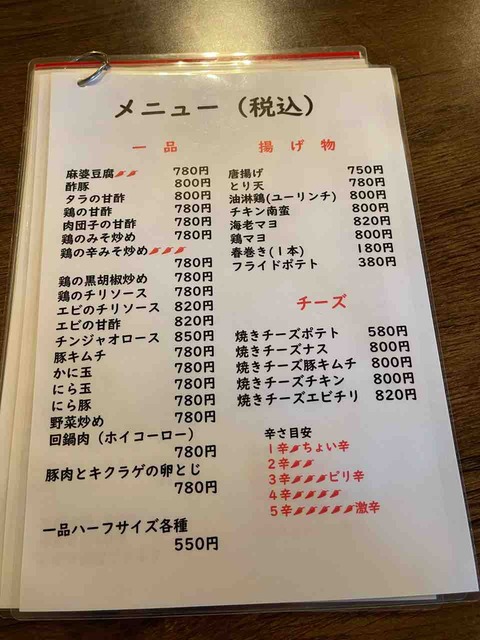 メニュー（税込）
一品
麻婆豆腐 780円
酢豚 800円
タラの甘酢 800円
鶏の甘酢 780円
肉団子の甘酢 780円
鶏のみそ炒め 780円
鶏の辛みそ炒め
780円
鶏の黒胡椒炒め 780円
鶏のチリソース 780円
エビのチリソース 820円
エビの甘酢 820円
チンジャオロース 850円
豚キムチ 780円
かに玉 780円
にら玉 780円
にら豚 780円
野菜炒め 780円
回鍋肉（ホイコーロー）
780円
豚肉とキクラゲの卵とじ
780円
一品ハーフサイズ各種
550円
揚げ物
唐揚げ 750円
とり天 780円
油淋鶏(ユーリンチ) 800円
チキン南蛮 800円
海老マヨ 820円
鶏マヨ 800円
春巻き(1本) 180円
フライドポテト 380円
チーズ
焼きチーズポテト 580円
焼きチーズナス 800円
焼きチーズ豚キムチ 800円
焼きチーズチキン 800円
焼きチーズエビチリ 820円
辛さ目安
1辛 ちょい辛
2辛
3辛 ピリ辛
4辛
5辛 激辛